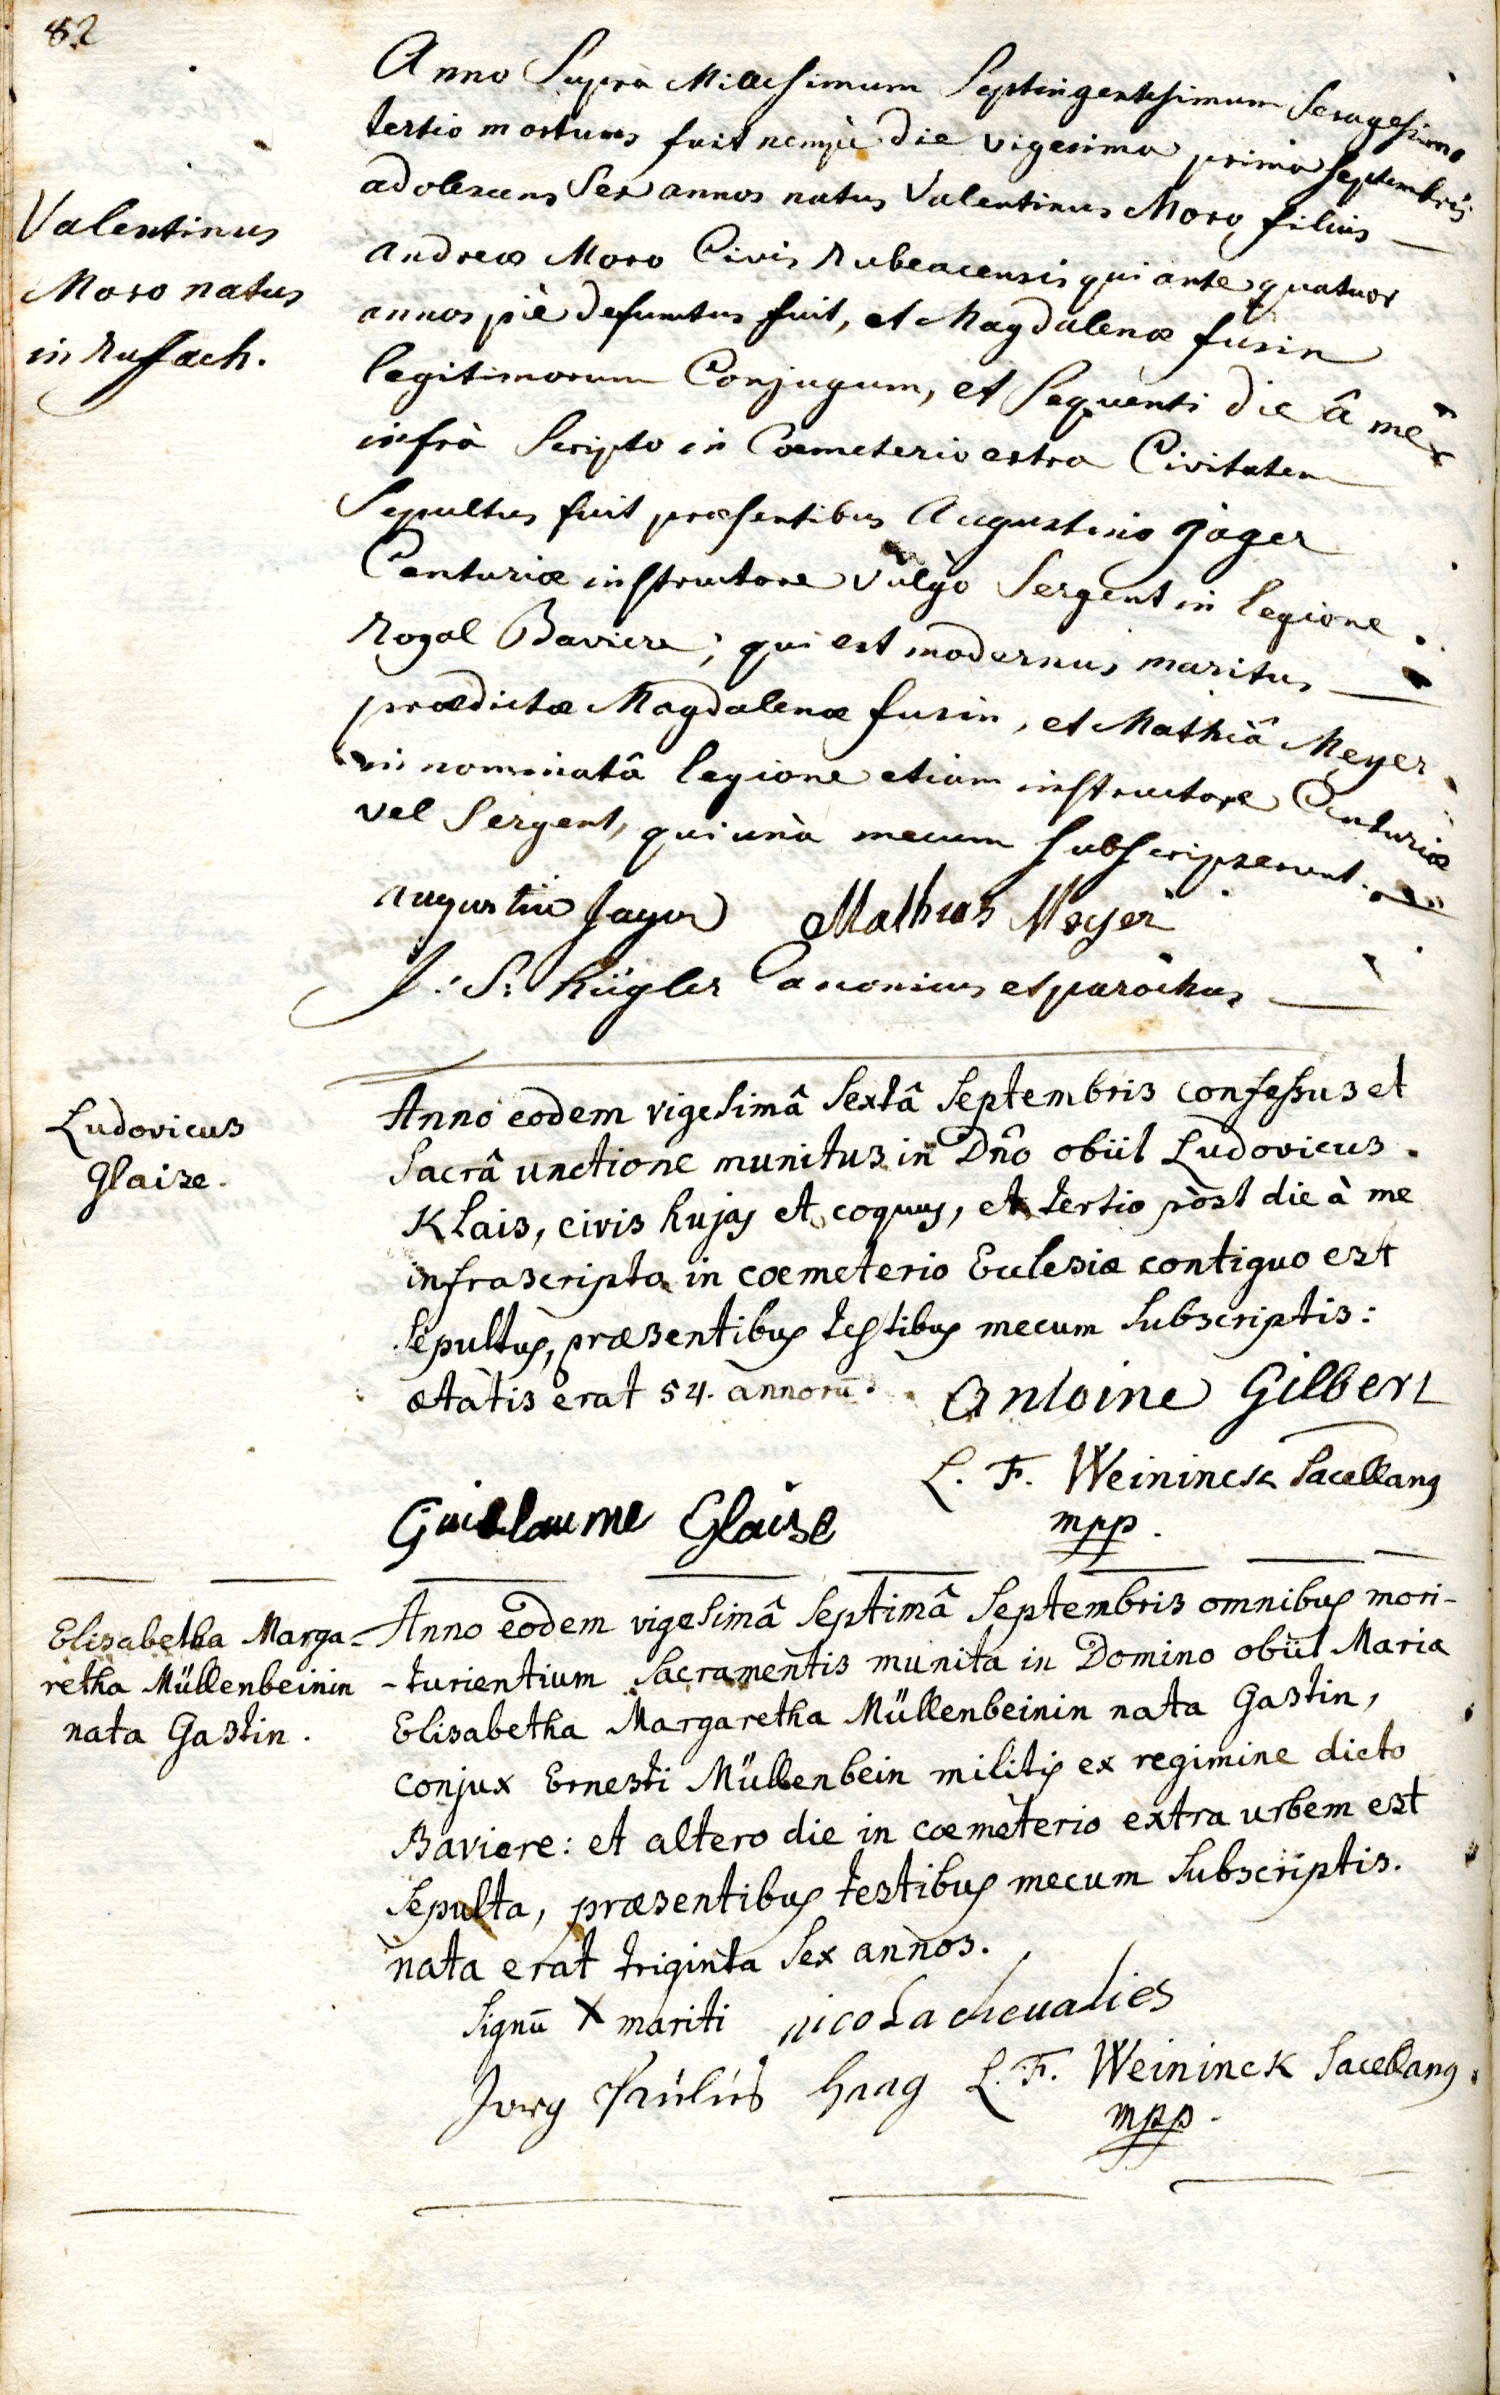 82
Anno Suprà Millesimum Septingentesimum Sexagesimo
tertio mortuus fuit nempè die vigesima primâ Septembris
adolescens Sex annos natus Valentinus Moro, filius
Valentinus
Moro natus
in Ruffach.
andreæ Moro Civis Rubeacensis qui ante quatuor
annos piè defunctus fuit, et Magdalenæ fusin
legitimorum Conjugum, et Sequenti die â me
infrà Scripto in Coemeterio extra Civitatem
Sepultus fuit præsentibus Augustino Jäger
Centuriæ instructore vulgo Sergent in legione
Royal Baviere; qui est modernus maritus
prædictæ Magdalenæ fusin, et Mathiâ Meyer
in nominatâ legione etiam instructore Centuriæ
vel Sergent, qui unà mecum subscripserunt.
augustin Jager Mathias Meyer
J: S: Kügler Canonicus et parochus
Ludovicus
Glaize.
Anno eodem vigesimâ Sextâ Septembris confessus et
Sacrâ unctione munitus in Dño obiit Ludovicus
Klais, civis hujas et coquus, et tertio pòst die à me
infrascripto in coemeterio Eclesiæ contiguo est
Sepultus, præsentibus testibus mecum Subscriptis:
ætatis erat 54. annorū.
Antoine Gilbert
L. F. Weininck Sacellanus
mpp.
Guillaume Glaise
Elisabetha Marga-
retha Müllenbeinin
nata Gastin.
Anno eodem vigesimâ Septimâ Septembris omnibus mori-
-turientium Sacramentis munita in Domino obiit Maria
Elisabetha Margaretha Müllenbeinin nata Gastin,
conjux Ernesti Müllenbein militis ex regimine dicto
Baviere: et altero die in coemeterio extra urbem est
Sepulta, præsentibus testibus mecum Subscriptis.
nata erat triginta Sex annos.
Signū X mariti nicola cheualies
Jorg Paulus Haag L. F. Weininck Sacellanus
mpp.